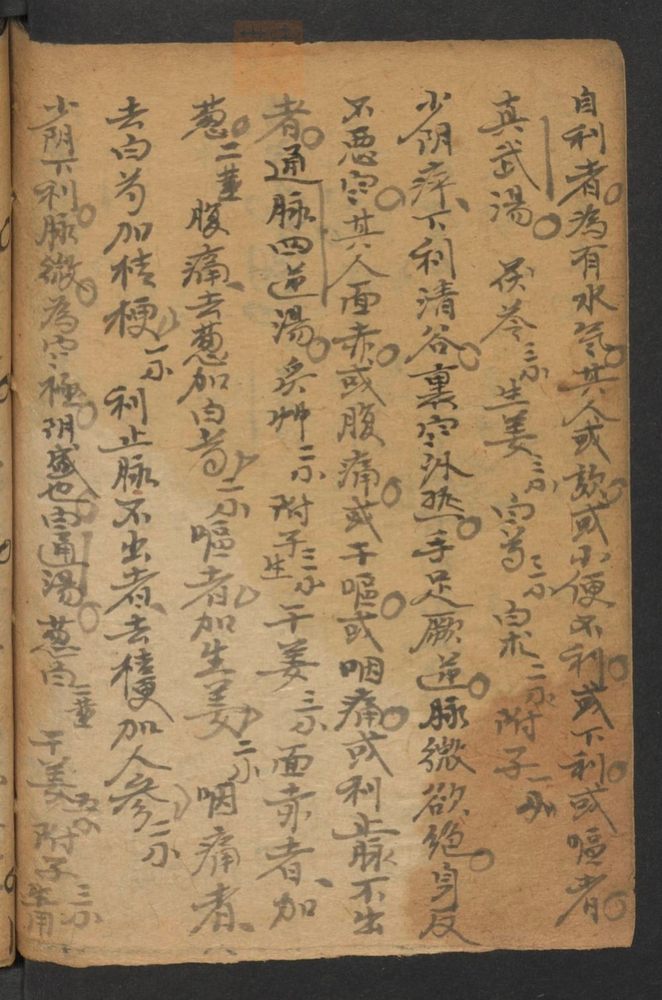 自利者。為有水氣。其人或欬。或小便不利。或下利。或嘔者。
真武湯。茯苓三小 生姜三小 白芍三小 白朮二小 附子一小
少阴病下利清谷。裏寒外热。手足厥逆。脉微欲绝。身反
不恶寒。其人面赤。或腹痛。或干嘔。或咽痛。或利止脉不出
者。通脉四逆湯。炙艸二小 附子生三小 干姜三小 面赤者、加
葱。二莖 腹痛、去葱加白芍、二小 嘔者、加生姜、二小 咽痛者、
去白芍加桔梗、一小 利止脉不出者、去桔梗加人参、二小
少阴下利。脉微。為寒極阴盛也。白通湯。葱白二莖 干姜五小 附子生用三小